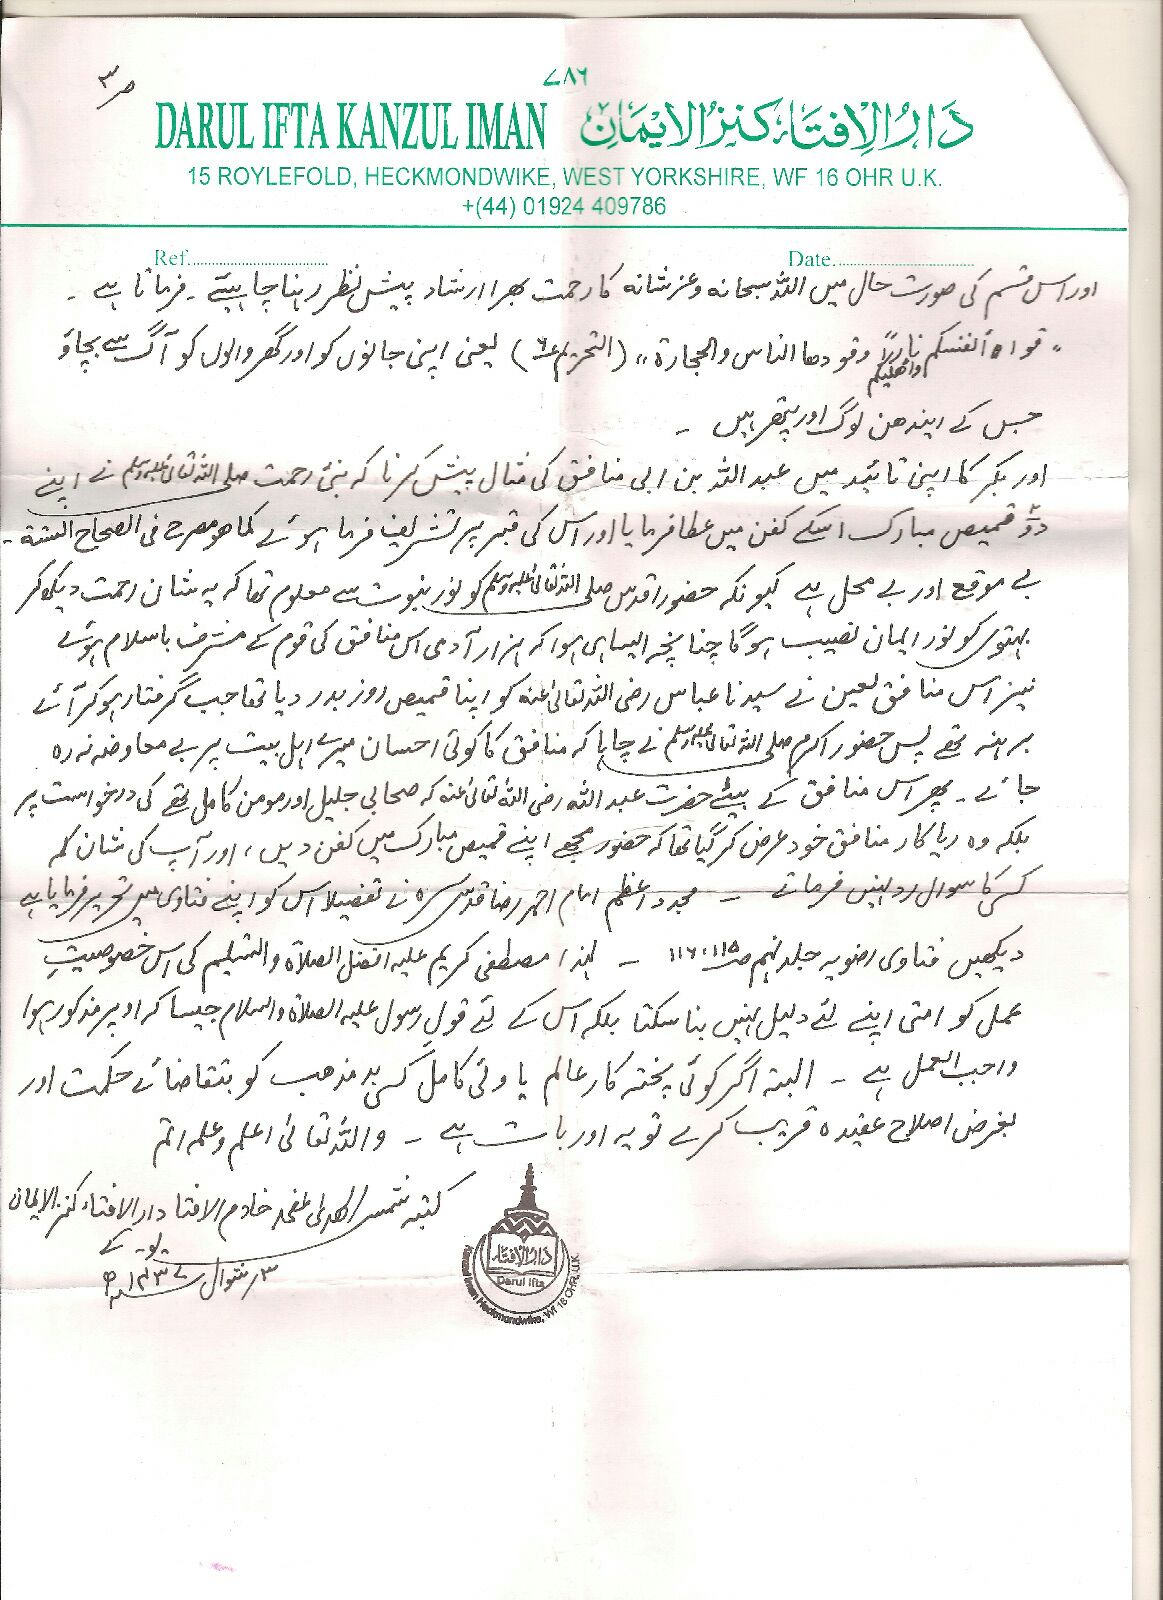 ص ۳
۷۸۶
DARUL IFTA KANZUL IMAN دَارُ الِافتَاء کنزُ الِایمَان
15 ROYLEFOLD, HECKMONDWIKE, WEST YORKSHIRE, WF 16 OHR U.K.
+(44) 01924 409786
Ref.................................. Date..................................
اور اس قسم کی صورت حال میں اللہ سبحانہ وعز شانہ کا رحمت بھرا ارشاد پیش نظر رہنا چاہیئے ۔ فرماتا ہے ۔
” قوا انفسکم واھلیکم ناراً وقودھا الناس والحجارة “ (التحریم ع ۶) یعنی اپنی جانوں کو اور گھر والوں کو آگ سے بچاؤ
جس کے ایندھن لوگ اور پتھر ہیں ۔
اور بکر کا اپنی تائید میں عبد اللہ بن ابی منافق کی مثال پیش کرنا کہ نبئ رحمت صلی اللہ تعالیٰ علیہ وسلم نے اپنے
دو قمیص مبارک اسکے کفن میں عطا فرمایا اور اس کی قبر پر تشریف فرما ہوئے کما ھو مصرح فی الصحاح الستة ۔
بے موقع اور بے محل ہے کیونکہ حضور اقدس صلی اللہ تعالیٰ علیہ وسلم کو نور نبوت سے معلوم تھا کہ یہ شان رحمت دیکھ کر
بہتوں کو نور ایمان نصیب ہوگا چنانچہ ایسا ہی ہوا کہ ہزار آدمی اس منافق کی قوم کے مشرف باسلام ہوئے
نیز اس منافق لعین نے سیدنا عباس رضی اللہ تعالیٰ عنہ کو اپنا قمیص روز بدر دیا تھا جب گرفتار ہوکر آئے
برہنہ تھے پس حضور اکرم صلی اللہ تعالیٰ علیہ وسلم نے چاہا کہ منافق کا کوئی احسان میرے اہل بیت پر بے معاوضہ نہ رہ
جائے ۔ پھر اس منافق کے بیٹے حضرت عبد اللہ رضی اللہ تعالیٰ عنہ کہ صحابی جلیل اور مومن کامل تھے کی درخواست پر
بلکہ وہ ریا کار منافق خود عرض کر گیا تھا کہ حضور مجھے اپنے قمیص مبارک میں کفن دیں ، اور آپ کی شان کہ
کسی کا سوال رد نہیں فرماتے ۔ مجدد اعظم امام احمد رضا قدس سرہ نے تفصیلا اس کو اپنے فتاوی میں تحریر فرمایا ہے
دیکھیں فتاوی رضویہ جلد نہم ص ۱۱۵ ، ۱۱۶ ۔ لہذا مصطفی کریم علیہ افضل الصلاة والتسلیم کی اس خصوصیتِ
عمل کو امتی اپنے لئے دلیل نہیں بنا سکتا بلکہ اس کے لئے قولِ رسول علیہ الصلاة والسلام جیسا کہ اوپر مذکور ہوا
واجب العمل ہے ۔ البتہ اگر کوئی پختہ کار عالم یا ولئ کامل کسی بد مذھب کو بتقاضائے حکمت اور
بغرض اصلاح عقیدہ قریب کرے تو یہ اور بات ہے ۔ واللہ تعالیٰ اعلم وعلمہ اتم
کتبہ شمس الھدیٰ عفی عنہ خادم الافتا دار الافتاء کنز الایمان
یو۔کے
۳ شوال ۱۴۳۷ھ
دار الافتاء
Darul Ifta
Kanzul Iman Heckmondwike, WF 16 OHR, U.K.